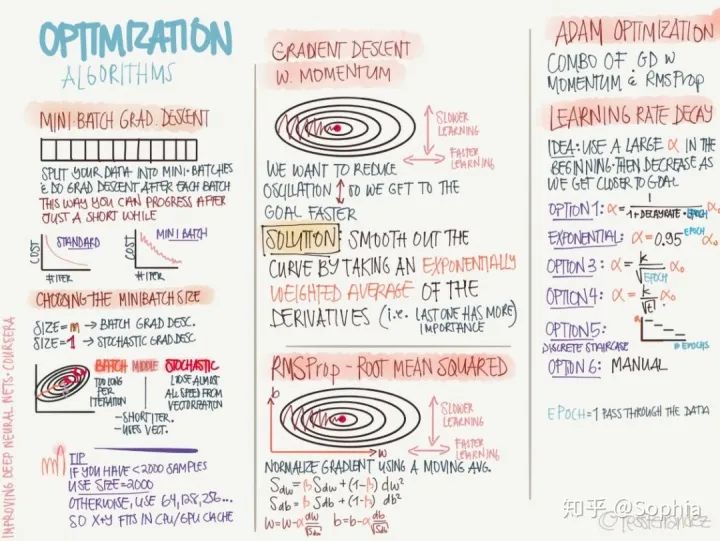 OPTIMIZATION
ALGORITHMS
MINI-BATCH GRAD. DESCENT
SPLIT YOUR DATA INTO MINI-BATCHES
& DO GRAD DESCENT AFTER EACH BATCH
THIS WAY YOU CAN PROGRESS AFTER
JUST A SHORT WHILE
COST
STANDARD
# ITER
COST
MINI BATCH
# ITER
CHOOSING THE MINIBATCH SIZE
SIZE=m → BATCH GRAD DESC.
SIZE=1 → STOCHASTIC GRAD DESC.
BATCH MIDDLE STOCHASTIC
TOO LONG
PER
ITERATION
LOSE ALMOST
ALL SPEED FROM
VECTORIZATION
-SHORT ITER.
-USES VECT.
TIP
IF YOU HAVE <2000 SAMPLES
USE SIZE=2000
OTHERWISE, USE 64, 128, 256...
SO X+Y FITS IN CPU/GPU CACHE
IMPROVING DEEP NEURAL NETS · COURSERA
GRADIENT DESCENT
W. MOMENTUM
SLOWER
LEARNING
FASTER
LEARNING
WE WANT TO REDUCE
OSCILLATION ↕ SO WE GET TO THE
GOAL FASTER
SOLUTION: SMOOTH OUT THE
CURVE BY TAKING AN EXPONENTIALLY
WEIGHTED AVERAGE OF THE
DERIVATIVES (i.e. LAST ONE HAS MORE)
IMPORTANCE
RMSProp - ROOT MEAN SQUARED
b
SLOWER
LEARNING
FASTER
LEARNING
W
NORMALIZE GRADIENT USING A MOVING AVG.
Sdw = β Sdw + (1-β) dw²
Sdb = β Sdb + (1-β) db²
W=W-α dw/√Sdw b=b-α db/√Sdb
ADAM OPTIMIZATION
COMBO OF GD W
MOMENTUM & RMSProp
LEARNING RATE DECAY
IDEA: USE A LARGE α IN THE
BEGINNING. THEN DECREASE AS
WE GET CLOSER TO GOAL
OPTION 1: α = 1/(1+DECAYRATE·EPOCH) α₀
EXPONENTIAL: α = 0.95^EPOCH α₀
OPTION 3: α = k/√EPOCH α₀
OPTION 4: α = k/√t α₀
OPTION 5:
DISCRETE STAIRCASE
α
# EPOCHS
OPTION 6: MANUAL
EPOCH = 1 PASS THROUGH THE DATA
知乎 @Sophia
@TessFerrandez